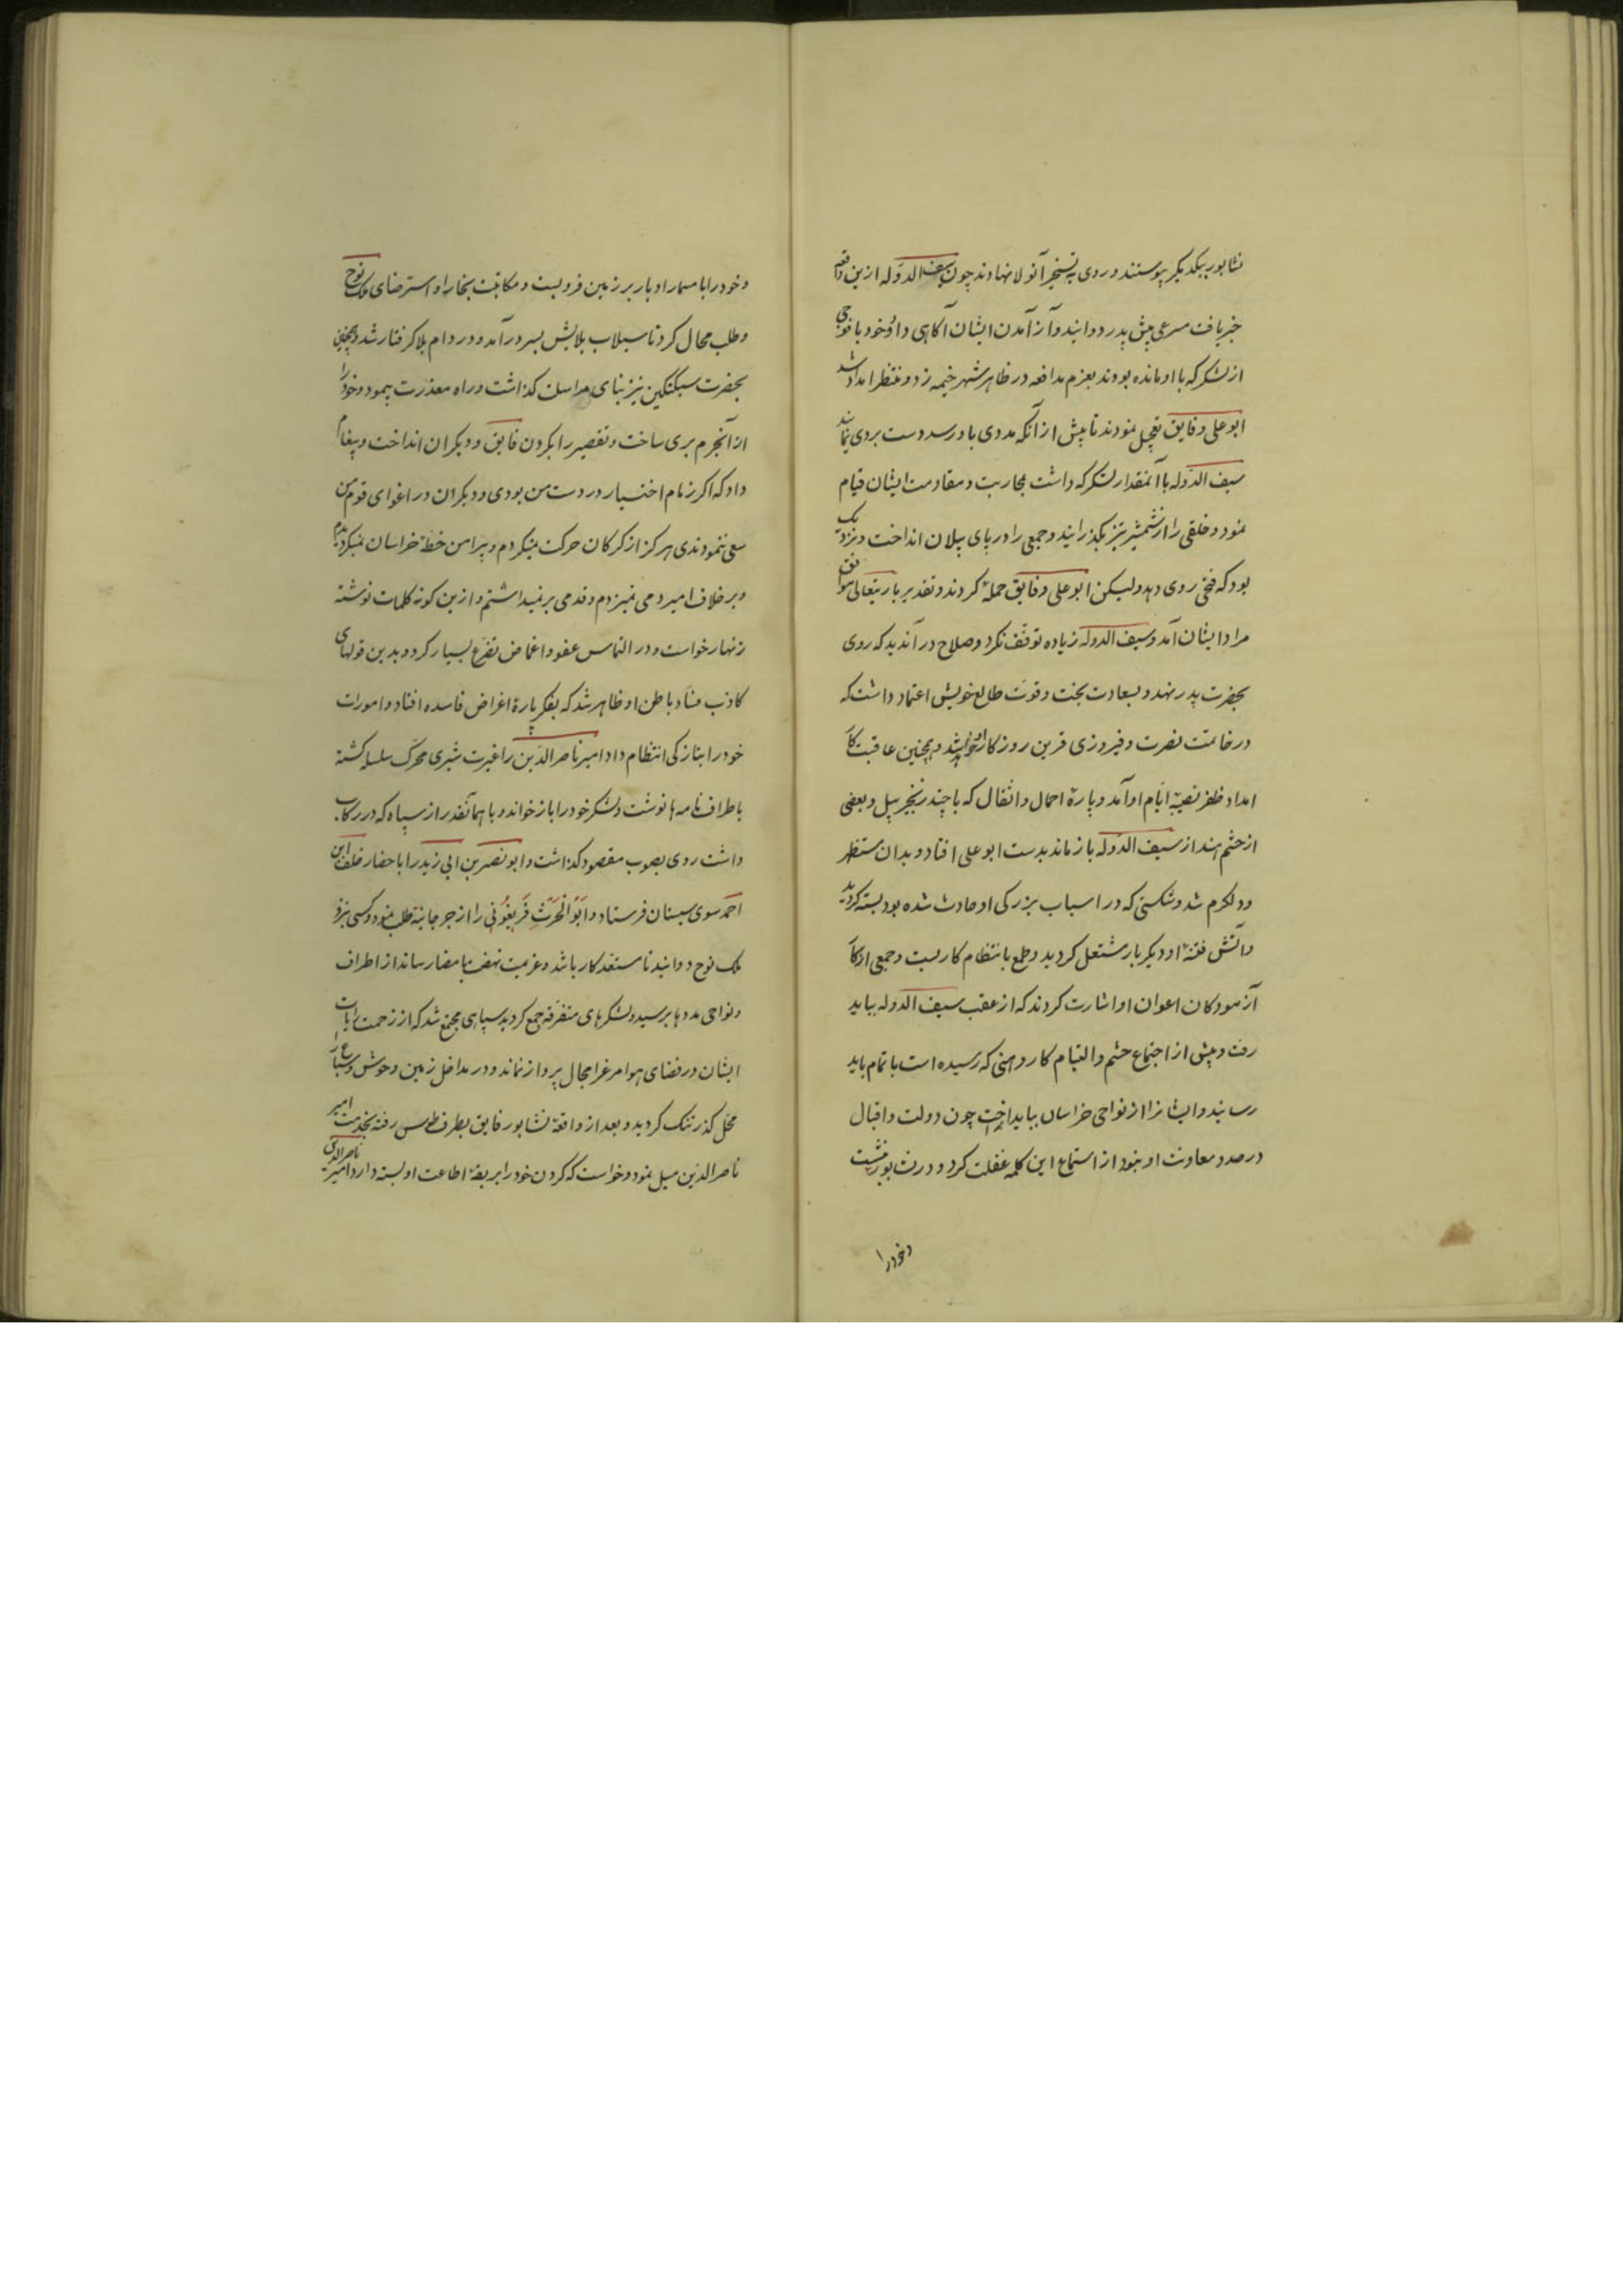 نشابور بیکدیگر پیوستند و روی به تسخیر آنولا نهادند چون سیف الدوله ازین واقعه
خبر یافت مسرعی پیش پدر دوانید و از آمدن ایشان آکاهی داد و خود با فوجی
از لشکر که با او مانده بودند بعزم مدافعه در ظاهر شهر خیمه زد و منتظر امداد شد
ابو علی و فایق تعجیل نمودند تا پیش از آنکه مددی باو رسد دست بردی نمایند
سیف الدوله با آنمقدار لشکر که داشت بمحاربت و مقاومت ایشان قیام
نمود و خلقی را از شمشیر تیز بکذرانید و جمعی را در پای پیلان انداخت و نزدیک
بود که فتحی روی دهد ولیکن ابو علی و فایق حمله کردند و تقدیر باریتعالی موافق
مراد ایشان آمد و سیف الدوله زیاده توقف نکرد و صلاح در آن دید که روی
بحضرت پدر نهد و بسعادت بخت و قوت طالع خویش اعتماد داشت که
در خاتمت نصرت و فیروزی قرین روزکار او خواهد شد و همچنین عاقبت کار
امداد ظفر نصیبهٔ ایام او آمد و پارهٔ احمال و اثقال که با چند زنجیر پیل و بعضی
از حشم هند از سیف الدوله باز ماند بدست ابو علی افتاد و بدان مستظهر
و دلکرم شد و شکستی که در اسباب بزرکی او حادث شده بود بسته کردید
و آتش فتنهٔ او دیکر بار مشتعل کردید و طمع بانتظام کار بست و جمعی از کار
آزمودکان اعوان او اشارت کردند که از عقب سیف الدوله بباید
رفت و پیش از اجتماع حشم و التیام کار و هنی که رسیده است باتمام باید
رسانید و ایشانرا از نواحی خراسان بباید انداخت چون دولت و اقبال
در صدد معاونت او نبود از استماع این کلمه غفلت کرد و در نشابور بنشست
و خود را
و خود را با مسمار ادبار بر زمین فرو بست و مکاتبت ببخارا و استرضای ملک نوح
و طلب محال کرد تا سیلاب بلایش بسر در آمد و در دام بلا کرفتار شد و همچنین
بحضرت سبکتکین نیز بنای مراسلت کذاشت و راه معذرت پیمود و خود را
از آنجرم بری ساخت و تقصیر را بکردن فایق و دیکران انداخت و پیغام
داد که اکر زمام اختیار در دست من بودی و دیکران در اغوای قوم من
سعی ننمودندی هرکز از کرکان حرکت نمیکردم و پیرامن خطهٔ خراسان نمیکردیدم
و بر خلاف امیر دمی نمیزدم و قدمی بر نمیداشتم و ازین کونه کلمات نوشته
زنهار خواست و در التماس عفو و اغماض تضرع بسیار کرد و بدین قولهای
کاذب فساد باطن او ظاهر شد که بفکر پارهٔ اغراض فاسده افتاد و امورات
خود را بتازکی انتظام داد امیر ناصر الدین را غیرت شیری محرک سلسله کشته
باطراف نامه ها نوشت و لشکر خود را باز خواند و با همانقدر از سپاه که در رکاب
داشت روی بصوب مقصود کذاشت و ابو نصر بن ابی زید را باحضار خلف ابن
احمد سوی سیستان فرستاد و ابو الحرث فریغونی را از جرجانیه طلب نمود و کسی نزد
ملک نوح دوانید تا مستعد کار باشد و عزیمت نهضت بامضا رساند از اطراف
و نواحی مددها برسید و لشکرهای متفرقه جمع کردید سپاهی مجتمع شد که از زحمت رایات
ایشان در فضای هوا مرغرا مجال پرواز نماند و در مداخل زمین وحوش و سباع را
محل کذر تنک کردید و بعد از واقعهٔ نشابور فایق بطرف طوس رفته بخدمت امیر
ناصر الدین میل نمود و خواست که کردن خود را بربقهٔ اطاعت او بسته دارد امیر ناصر الدین